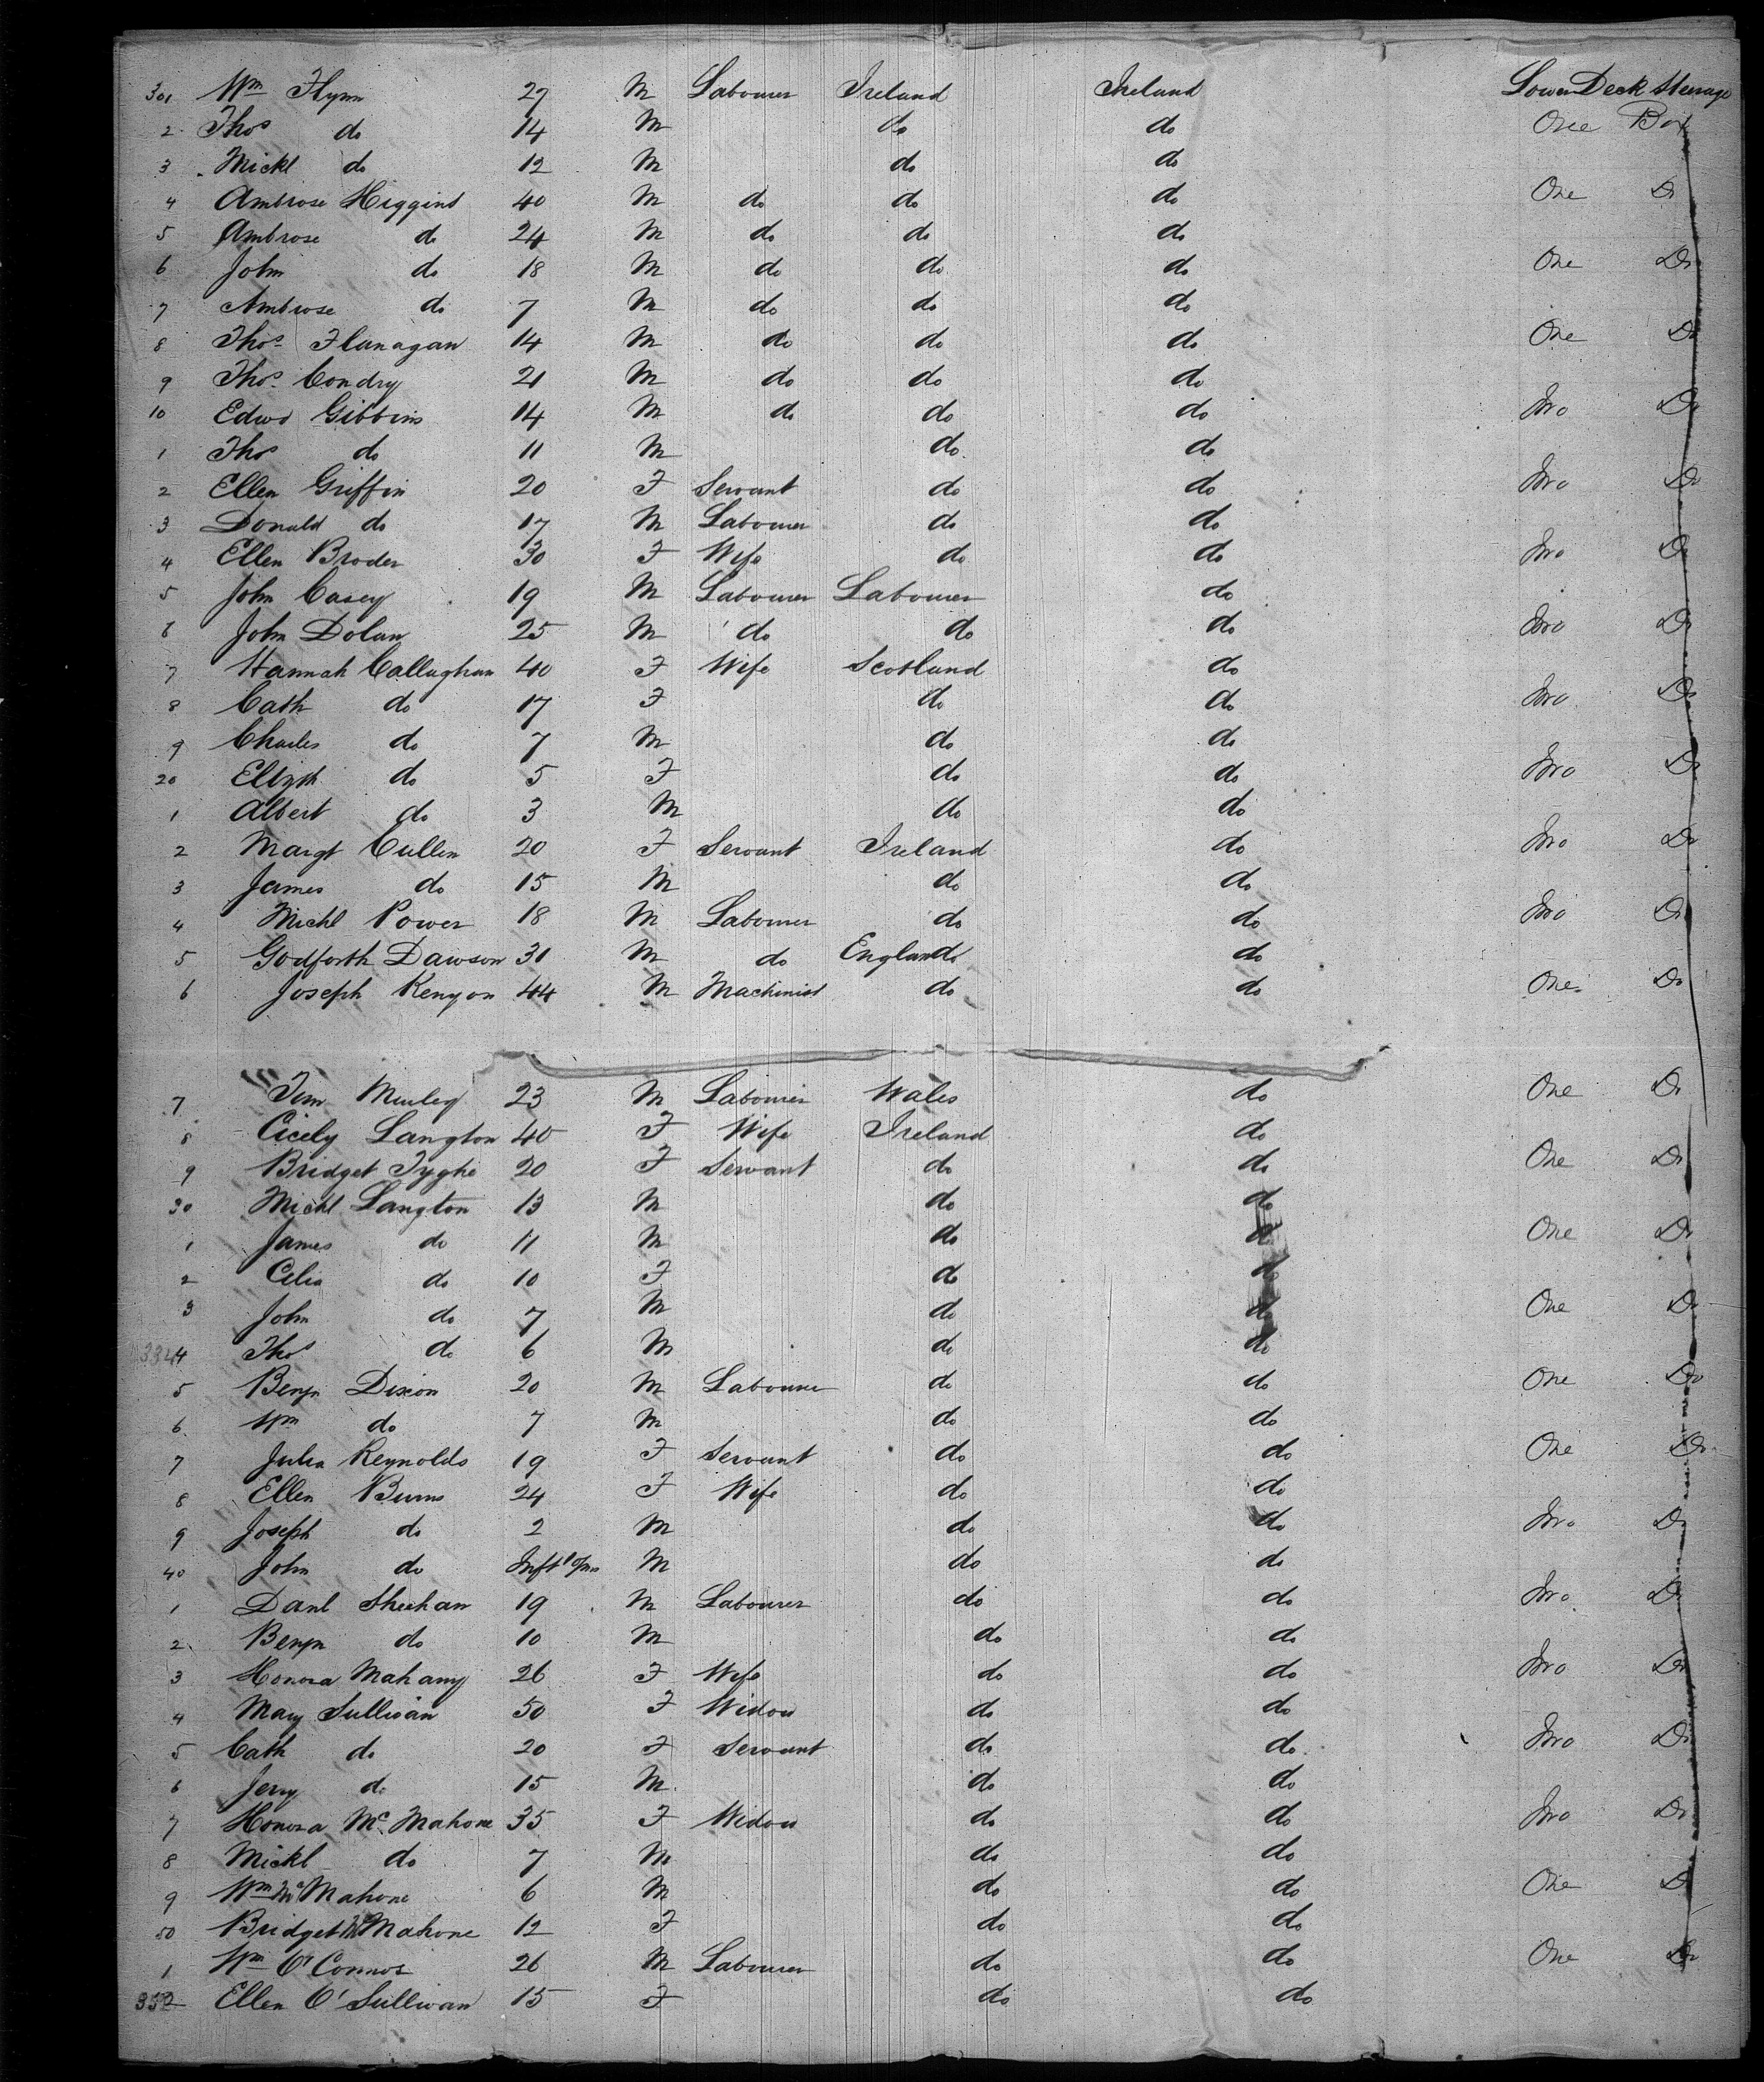 301 Wm Flynn 27 M Labourer Ireland Ireland Lower Deck Steerage
2 Thos do 14 M do do One Box
3 Mickl do 12 M do do
4 Ambrose Higgins 40 M do do do One Do
5 Ambrose do 24 M do do do
6 John do 18 M do do do One Do
7 Ambrose do 7 M do do do
8 Thos Flanagan 14 M do do do One Do
9 Thos Condry 21 M do do do
10 Edwd Gibbins 14 M do do do Two Do
1 Thos do 11 M do do
2 Ellen Griffin 20 F Servant do do Two Do
3 Donald do 17 M Labourer do do
4 Ellen Broder 30 F Wife do do Two Do
5 John Casey 19 M Labourer Labourer do
6 John Dolan 25 M do do do Two Do
7 Hannah Callaghan 40 F Wife Scotland do
8 Cath do 17 F do do Two Do
9 Charles do 7 M do do
20 Elizth do 5 F do do Two Do
1 Albert do 3 M do do
2 Margt Cullen 20 F Servant Ireland do Two Do
3 James do 15 M do do
4 Michl Power 18 M Labourer do do Two Do
5 Godforth Dawson 31 M do England do
6 Joseph Kenyon 44 M Machinist do do One Do
7 Tim 23 M Labourer Wales do One Do
8 Cicely Langton 40 F Wife Ireland do
9 Bridget Tyghe 20 F Servant do do One Do
30 Michl Langton 13 M do do
1 James do 11 M do do One Do
2 Celia do 10 F do do
3 John do 7 M do do One Do
334 4 Thos do 6 M do do
5 Benjn Dixon 20 M Labourer do do One Do
6 Wm do 7 M do do
7 Julia Reynolds 19 F Servant do do One Do
8 Ellen Burns 24 F Wife do do
9 Joseph do 2 M do do Two Do
40 John do Inft M do do
1 Danl Sheehan 19 M Labourer do do Two Do
2 Benjn do 10 M do do
3 Honora Mahany 26 F Wife do do Two Do
4 Mary Sullivan 50 F Widow do do
5 Cath do 20 F Servant do do Two Do
6 Jerry do 15 M do do
7 Honora Mc Mahone 35 F Widow do do Two Do
8 Mickl do 7 M do do
9 Wm Mc Mahone 6 M do do One Do
50 Bridget Mc Mahone 12 F do do
1 Wm O'Connor 26 M Labourer do do One Do
352 Ellen O'Sullivan 15 F do do